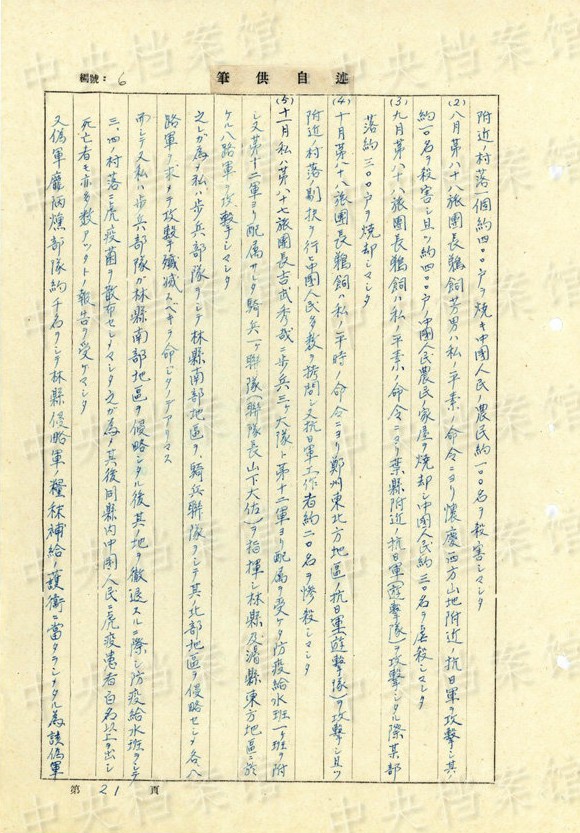 中央档案馆
編號：6
筆供自述
附近ノ村落一個約四〇〇戸ヲ焼キ中國人民ノ農民約一〇〇名ヲ殺害シマシタ
(2)八月第八十八旅團長鵜飼芳男ハ私ノ平素ノ命令ニヨリ懐慶西方山地附近ノ抗日軍ヲ攻撃シ其ノ
約一〇名ヲ殺害シ且ツ約四〇〇戸ノ中國人民農民ノ家屋ヲ焼却シ中國人民約三〇名ヲ虐殺シマシタ
(3)九月第八十八旅團長鵜飼ハ私ノ平素ノ命令ニヨリ葉縣附近ノ抗日軍(遊撃隊)ヲ攻撃シタル際某部
落約三〇〇戸ヲ焼却シマシタ
(4)十月第八十八旅團長鵜飼ハ私ノ平時ノ命令ニヨリ鄭州東北方地區ノ抗日軍(遊撃隊)ヲ攻撃シ且ツ
附近ノ村落剔抉ヲ行ヒ中國人民多数ヲ拷問シ又抗日軍工作者約二〇名ヲ惨殺シマシタ
(5)十一月私ハ第八十七旅團長吉武秀哉ニ歩兵三ヶ大隊ト第十二軍ヨリ配属ヲ受ケタ防疫給水班一ヶ班ヲ附
シ又第十二軍ヨリ配属サレタ騎兵一ヶ聯隊(聯隊長山下大佐)ヲ指揮シ林縣及濬縣東方地區ニ於
ケル八路軍ヲ攻撃シマシタ
之レガ為メ私ハ歩兵部隊ヲシテ林縣南部地區ヲ、騎兵聯隊ヲシテ其ノ北部地區ヲ侵略セシメ各〻八
路軍ヲ求メテ攻撃殲滅スベキヲ命ジタノデアリマス
而シテ又私ハ歩兵部隊ガ林縣南部地區ヲ侵略シタル後其ノ地ヲ撤退スルニ際シ防疫給水班ヲシテ
三、四ノ村落ニ虎疫菌ヲ散布セシメマシタ之ガ為メ其後同縣内中國人民ニ虎疫患者百名以上ヲ出シ
死亡者モ亦多数アツタト報告ヲ受ケマシタ
又偽軍龐炳燻部隊約千名ヲシテ林縣侵略軍ノ糧秣補給ノ護衛ニ當タラシメタル為該偽軍
第21頁